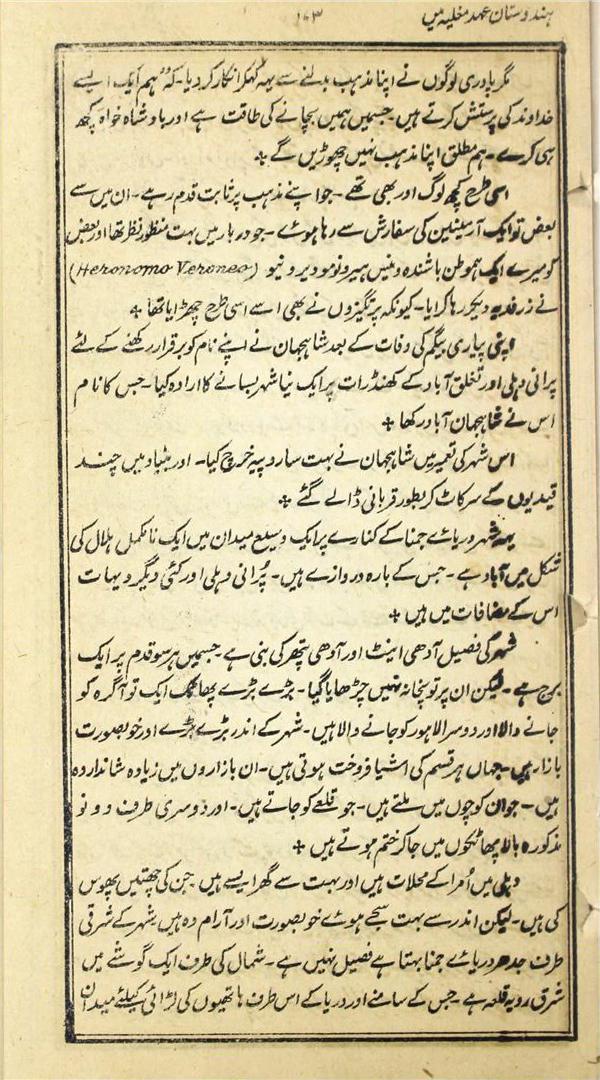 ہندوستان عہد مغلیہ میں
۱۰۳
مگر پادری لوگوں نے اپنا مذہب بدلنے سے یہہ کہکر انکار کر دیا۔ کہ "ہم ایک ایسے
خداوند کی پرستش کرتے ہیں۔ جسمیں ہمیں بچانے کی طاقت ہے اور بادشاہ خواہ کچھ
ہی کرے۔ ہم مطلق اپنا مذہب نہیں چھوڑیں گے ٭
اسی طرح کچھ لوگ اور بھی تھے۔ جو اپنے مذہب پر ثابت قدم رہے۔ ان میں سے
بعض تو ایک آرمینین کی سفارش سے رہا ہوئے۔ جو دربار میں بہت منظور نظر تھا اور بعض
کو میرے ایک ہموطن باشندہ وینس ہیرونومو ویرونیو (Heronomo Veroneo)
نے زر فدیہ دیکر رہا کرایا۔ کیونکہ پرتگیزوں نے بھی اسے اسی طرح چھڑایا تھا ٭
اپنی پیاری بیگم کی وفات کے بعد شاہجہان نے اپنے نام کو برقرار رکھنے کے لئے
پرانی دہلی اور تغلق آباد کے کھنڈرات پر ایک نیا شہر بسانے کا ارادہ کیا۔ جس کا نام
اس نے شاہجہان آباد رکھا ٭
اس شہر کی تعمیر میں شاہجہان نے بہت سا روپیہ خرچ کیا۔ اور بنیاد میں چند
قیدیوں کے سر کاٹ کر بطور قربانی ڈالے گئے ٭
یہہ شہر دریائے جمنا کے کنارے پر ایک وسیع میدان میں ایک نامکمل ہلال کی
شکل میں آباد ہے۔ جس کے بارہ دروازے ہیں۔ پُرانی دہلی اور کئی دیگر دیہات
اس کے مضافات میں ہیں ٭
شہر کی فصیل آدھی اینٹ اور آدھی پتھر کی بنی ہے۔ جسمیں ہر سو قدم پر ایک
برج ہے۔ لیکن ان پر توپخانہ نہیں چڑھایا گیا۔ بڑے بڑے پھاٹک ایک تو آگرہ کو
جانے والا اور دوسرا لاہور کو جانے والا ہیں۔ شہر کے اندر بڑے بڑے اور خوبصورت
بازار ہیں۔ جہاں ہر قسم کی اشیا فروخت ہوتی ہیں۔ ان بازاروں میں زیادہ شاندار وہ
ہیں۔ جو ان کوچوں میں ملتے ہیں۔ جو قلعے کو جاتے ہیں۔ اور دوسری طرف دونو
مذکورہ بالا پھاٹکوں میں جا کر ختم ہوتے ہیں ٭
دہلی میں اُمرا کے محلات ہیں اور بہت سے گھر ایسے ہیں۔ جن کی چھتیں پھوس
کی ہیں۔ لیکن اندر سے بہت سجے ہوئے خوبصورت اور آرام دہ ہیں۔ شہر کے شرقی
طرف جدھر دریائے جمنا بہتا ہے فصیل نہیں ہے۔ شمال کی طرف ایک گوشے میں
شرق رویہ قلعہ ہے۔ جس کے سامنے اور دریا کے اس طرف ہاتھیوں کی لڑائی کیلئے میدان